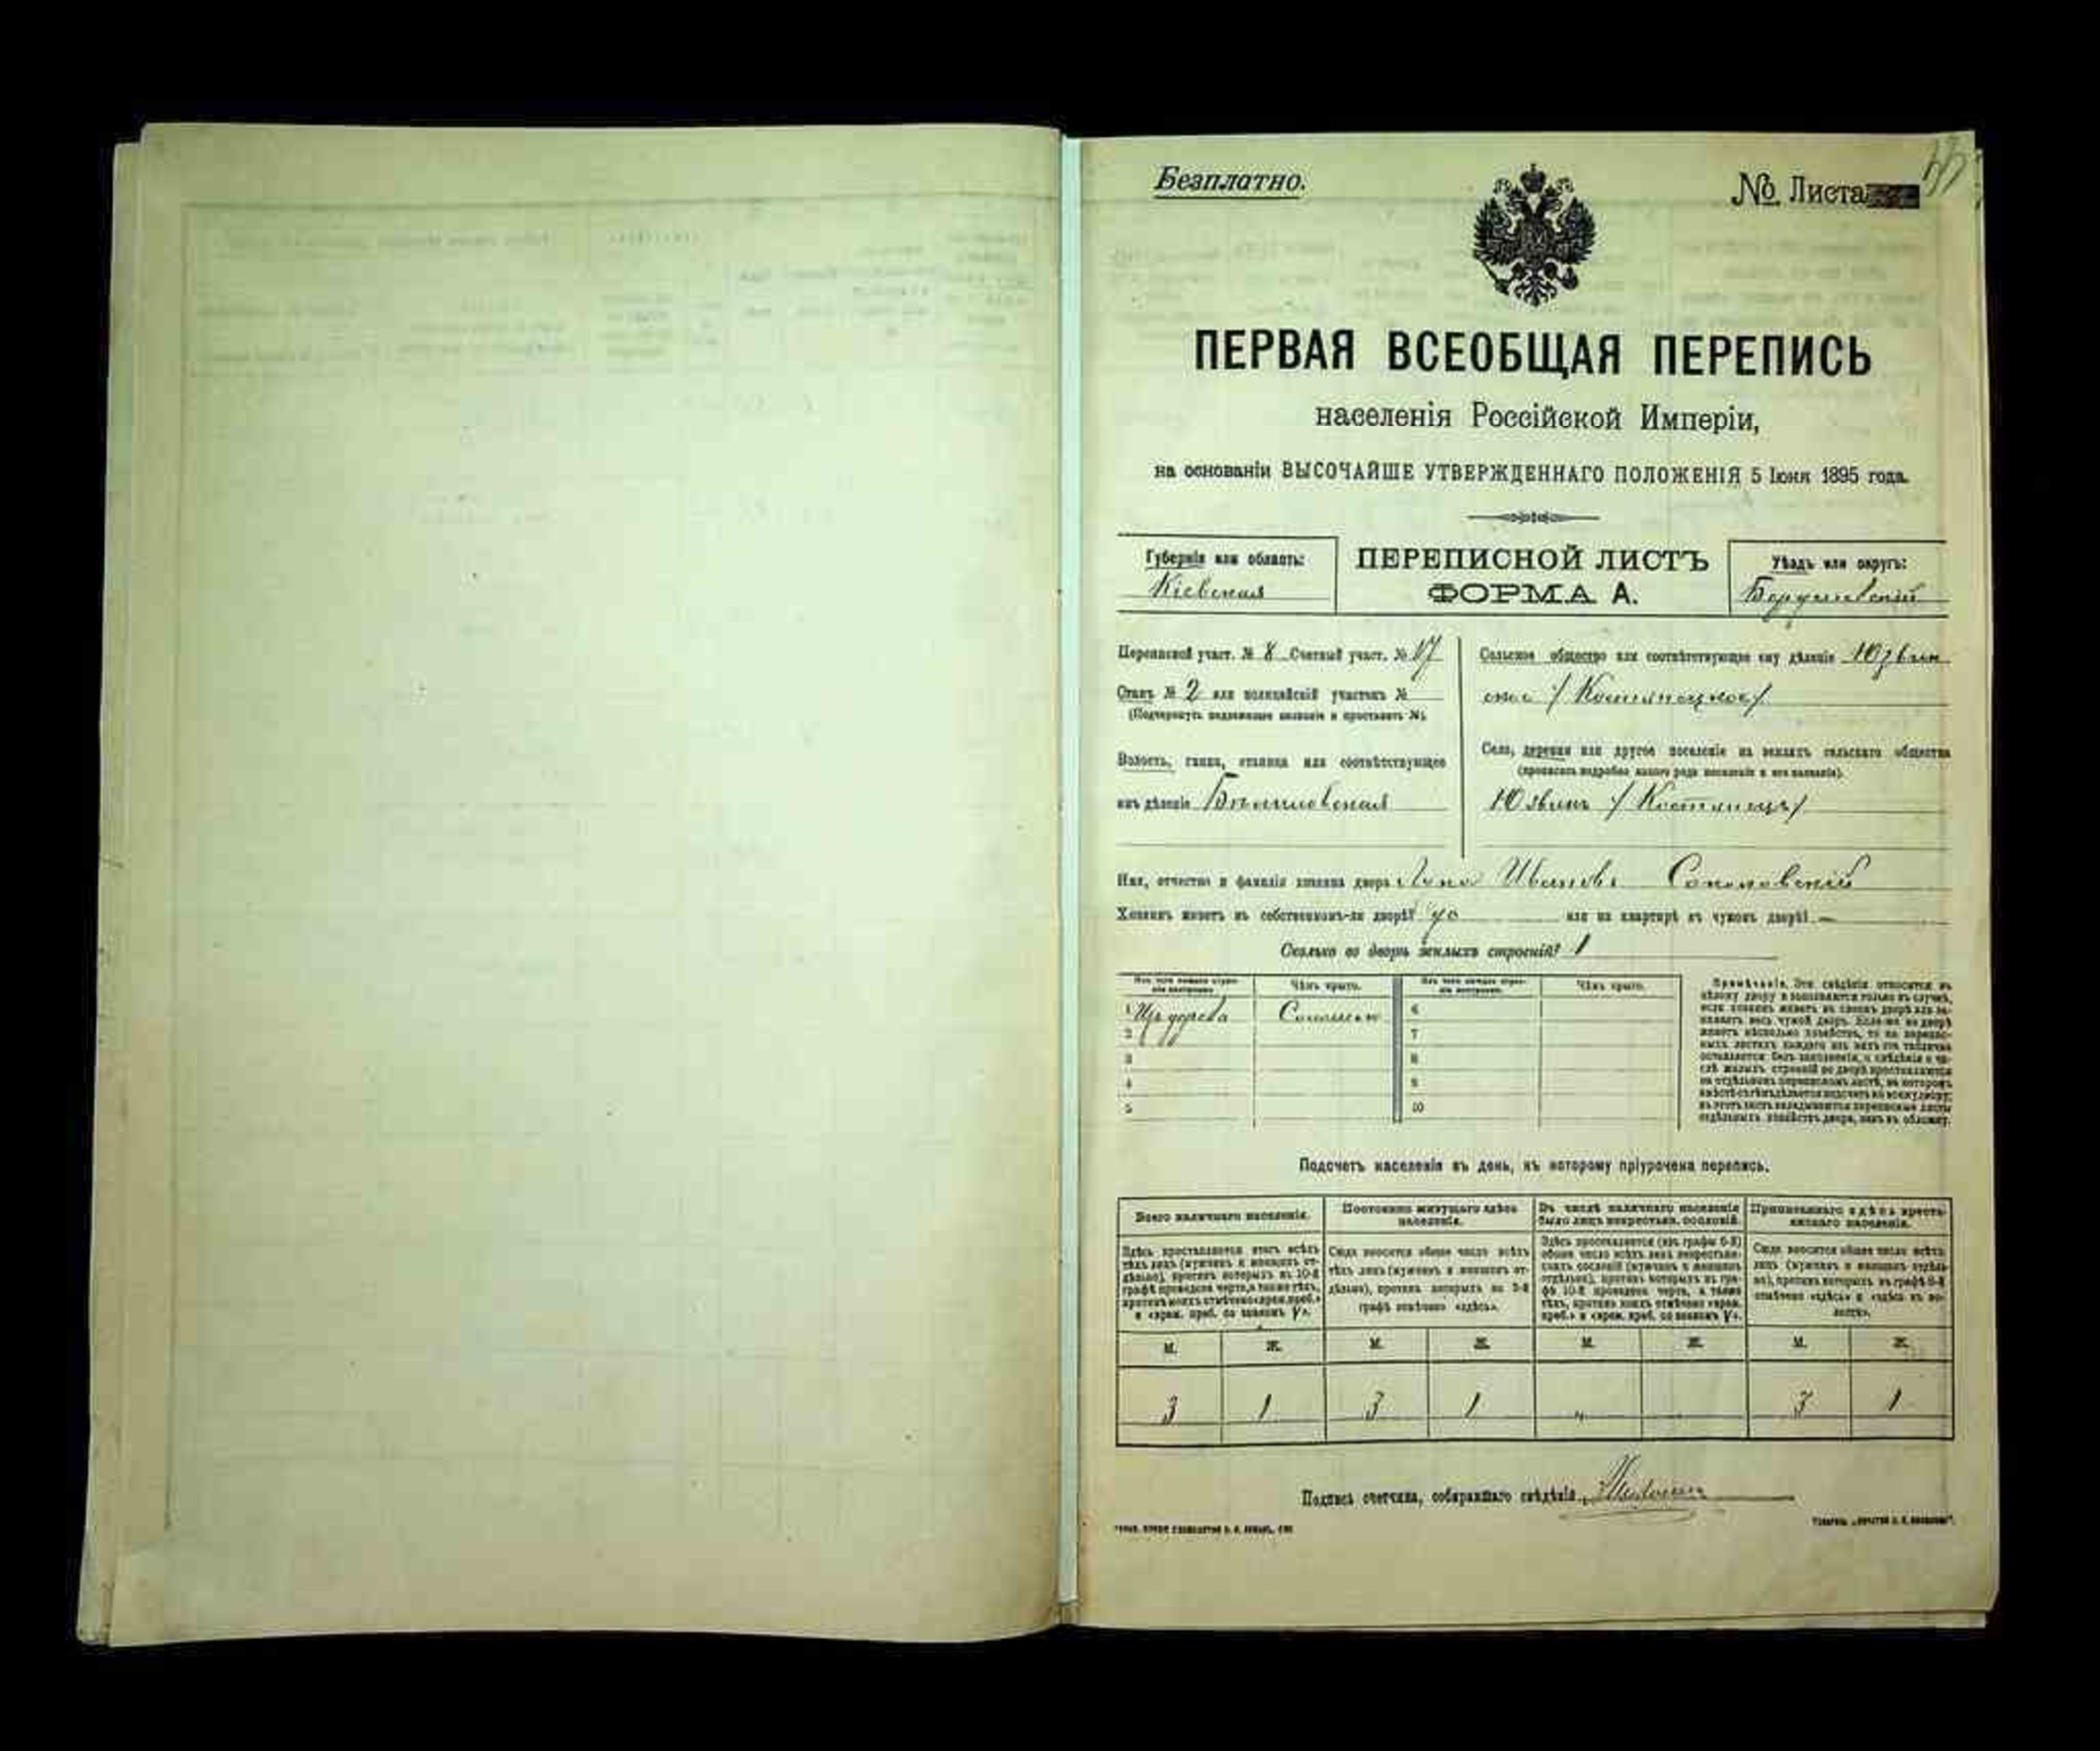 Безплатно.
№ Листа
ПЕРВАЯ ВСЕОБЩАЯ ПЕРЕПИСЬ
населенія Россійской Имперіи,
на основаніи ВЫСОЧАЙШЕ УТВЕРЖДЕННАГО ПОЛОЖЕНІЯ 5 Іюня 1895 года.
Губернія или область:
Кіевская
ПЕРЕПИСНОЙ ЛИСТЪ
ФОРМА А.
Уѣздъ или округъ:
Переписной участ. № 8 Счетный участ. № 17
Станъ № 2 или полицейскій участокъ №
(Подчеркнуть надлежащее названіе и проставить №).
Волость, гмина, станица или соотвѣтствующее
имъ дѣленіе
Сельское общество или соотвѣтствующее ему дѣленіе Юзвин
ское /Костянецкое/
Село, деревня или другое поселеніе на земляхъ сельскаго общества
(прописать подробно какого рода поселеніе и его названіе).
Юзвинъ /Костянецъ/
Имя, отчество и фамилія хозяина двора Лука Ивановъ Соколовскій
Хозяинъ живетъ въ собственномъ-ли дворѣ? да или на квартирѣ въ чужомъ дворѣ? —
Сколько во дворѣ жилыхъ строеній? 1
Изъ чего каждое строеніе построено.
Чѣмъ крыто.
Изъ чего каждое строеніе построено.
Чѣмъ крыто.
1 Изъ дерева Соломою 6
2 7
3 8
4 9
5 10
Примѣчаніе. Эти свѣдѣнія относятся къ
цѣлому двору и заполняются только въ случаѣ,
если хозяинъ живетъ въ своемъ дворѣ или за-
нимаетъ весь чужой дворъ. Если-же во дворѣ
живетъ нѣсколько хозяйствъ, то на перепис-
ныхъ листахъ каждаго изъ нихъ эта табличка
оставляется безъ заполненія, а свѣдѣнія о чи-
слѣ жилыхъ строеній во дворѣ проставляются
на отдѣльномъ переписномъ листѣ, на которомъ
въ этотъ листъ вкладываются переписные листы
отдѣльныхъ хозяйствъ двора, какъ въ обложку.
Подсчетъ населенія въ день, къ которому пріурочена перепись.
Всего наличнаго населенія.
Постоянно живущаго здѣсь
населенія.
Въ числѣ наличнаго населенія
было лицъ некрестьян. сословій.
Приписаннаго здѣсь кресть-
янскаго населенія.
Здѣсь проставляется итогъ всѣхъ
тѣхъ лицъ (мужчинъ и женщинъ от-
дѣльно), противъ которыхъ въ 10-й
графѣ проведена черта, а также тѣхъ,
противъ коихъ отмѣчено «врем. преб.»
и «врем. преб. со знакомъ V».
Сюда вносится общее число всѣхъ
тѣхъ лицъ (мужчинъ и женщинъ от-
дѣльно), противъ которыхъ въ 9-й
графѣ отмѣчено «здѣсь».
Здѣсь проставляется (изъ графы 6-й)
общее число всѣхъ лицъ некрестьян-
скихъ сословій (мужчинъ и женщинъ
отдѣльно), противъ которыхъ въ гра-
фѣ 10-й проведена черта, а также
тѣхъ, противъ коихъ отмѣчено «врем.
преб.» и «врем. преб. со знакомъ V».
Сюда вносится общее число всѣхъ
лицъ (мужчинъ и женщинъ отдѣль-
но), противъ которыхъ въ графѣ 8-й
отмѣчено «здѣсь» и «здѣсь въ во-
лости».
М. Ж. М. Ж. М. Ж. М. Ж.
3 1 3 1 " 3 1
Подпись счетчика, собиравшаго свѣдѣнія